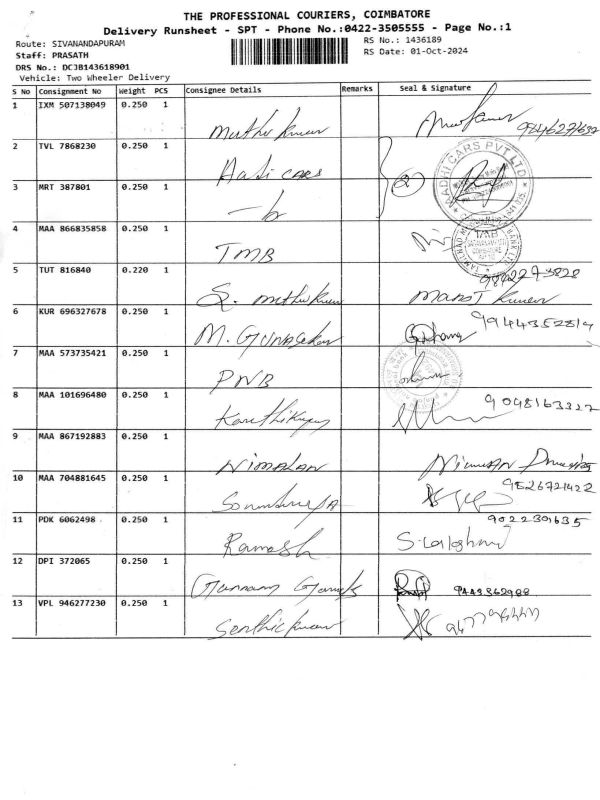 THE PROFESSIONAL COURIERS, COIMBATORE
Delivery Runsheet - SPT - Phone No.:0422-3505555 - Page No.:1
Route: SIVANANDAPURAM
RS No.: 1436189
Staff: PRASATH
RS Date: 01-Oct-2024
DRS No.: DCJB143618901
Vehicle: Two Wheeler Delivery
S No Consignment No Weight PCS Consignee Details Remarks Seal & Signature
1 IXM 507138049 0.250 1 Muthu Kumar
2 TVL 7868230 0.250 1 Aadi cars
3 MRT 387801 0.250 1 (2)
4 MAA 866835858 0.250 1 TMB
5 TUT 816840 0.220 1 S. muthukumar Manoj Kumar
6 KUR 696327678 0.250 1 M. Gunasekar 9944352814
7 MAA 573735421 0.250 1 PNB
8 MAA 101696480 0.250 1 9048163327
9 MAA 867192883 0.250 1 Nimalan
10 MAA 704881645 0.250 1 9526721422
11 PDK 6062498 0.250 1 Ramesh 9022301635
12 DPI 372065 0.250 1 9443862988
13 VPL 946277230 0.250 1 Senthil kumar